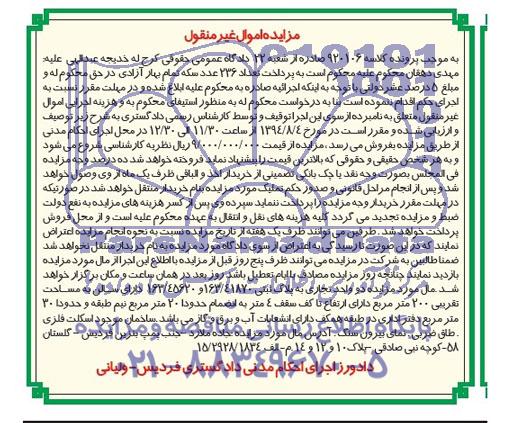 مزایده اموال غیر منقول
به موجب پرونده کلاسه ۹۲۰۱۰۶ صادره از شعبه ۲۲ دادگاه عمومی حقوقی کرج له خدیجه عبدالهی علیه
مهدی دهقان محکوم علیه محکوم است به پرداخت تعداد ۲۳۶ عدد سکه تمام بهار آزادی در حق محکوم له و
مبلغ ۵ درصد عشر دولتی با توجه به اینکه اجرائیه صادره به محکوم علیه ابلاغ شده و در مهلت مقرر نسبت به
اجرای حکم اقدام ننموده است بنا به درخواست محکوم له به منظور استیفای محکوم به و هزینه اجرایی اموال
غیر منقول متعلق به نامبرده از سوی این اجرا توقیف و توسط کارشناس رسمی دادگستری به شرح زیر توصیف
و ارزیابی شده و مقرر است در مورخ ۱۳۹۴/۸/۴ از ساعت ۱۱/۳۰ الی ۱۲/۳۰ در محل اجرای احکام مدنی
از طریق مزایده بفروش می رسد، مزایده از قیمت ۹/۰۰۰/۰۰۰/۰۰۰ ریال نظریه کارشناسی شروع می شود
و به هر شخص حقیقی و حقوقی که بالاترین قیمت را پیشنهاد نماید فروخته خواهد شد ده درصد وجه مزایده
فی المجلس بصورت وجه نقد یا چک بانکی تضمینی از خریدار اخذ و الباقی ظرف یک ماه از وی وصول خواهد
شد و پس از انجام مراحل قانونی و صدور حکم تملیک مورد مزایده بنام خریدار منتقل خواهد شد در صورتیکه
در مهلت مقرر خریدار وجه مزایده را پرداخت ننماید سپرده وی پس از کسر هزینه های مزایده به نفع دولت
ضبط و مزایده تجدید می گردد کلیه هزینه های نقل و انتقال به عهده محکوم علیه است و از محل فروش
پرداخت خواهد شد. طرفین می توانند ظرف یک هفته از تاریخ مزایده نسبت به نحوه انجام مزایده اعتراض
نمایند که در این صورت تا رسیدگی به اعتراض از سوی دادگاه مورد مزایده به نام خریدار منتقل نخواهد شد
ضمنا طالبین به شرکت در مزایده می توانند ظرف پنج روز قبل از مزایده با اطلاع این اجرا از مال مورد مزایده
بازدید نمایند چنانچه روز مزایده مصادف با ایام تعطیل باشد روز بعد در همان ساعت و مکان برگزار خواهد
شد. مال مورد مزایده دو واحد تجاری به پلاک ثبتی ۱۶۳/۴۱۸۷۰ و ۱۶۳/۴۵۶۲۰ دارای سالن به مساحت
تقریبی ۲۰۰ متر مربع دارای ارتفاع تا کف سقف ۴ متر به انضمام حدودا ۲۰ متر مربع نیم طبقه و حدودا ۳۰
متر مربع دفتر اداری در طبقه همکف دارای انشعابات آب و برق و گاز می باشد. ساختمان موجود اسکلت فلزی
. طاق ضربی. نمای بیرون سنگ. آدرس مال مورد مزایده جاده ملارد – جنب پمپ بنزین پردیس – گلستان
۵۸-کوچه نبی صادقی –پلاک ۱۰ و ۱۲ و ۱۴ م-الف ۱۵/۲۹۲۸/۱۸۳۴
دادورز اجرای احکام مدنی دادگستری فردیس – ولیانی
۰۲۱-۸۸۳۴۹۶۷۰-۵